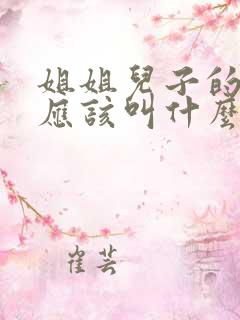 姐姐兒子的
應該叫什麼
崔芸